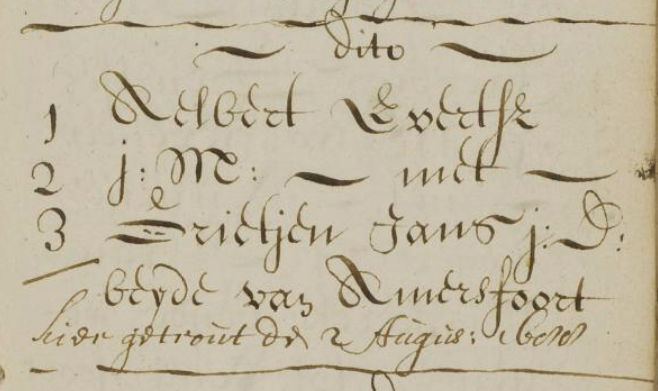 dito
1 Aelbert Evertse
2 j: M: met
3 Grietjen Jans j: D:
beyde van Amersfoort
hier getrout de 2 Augus: 1688